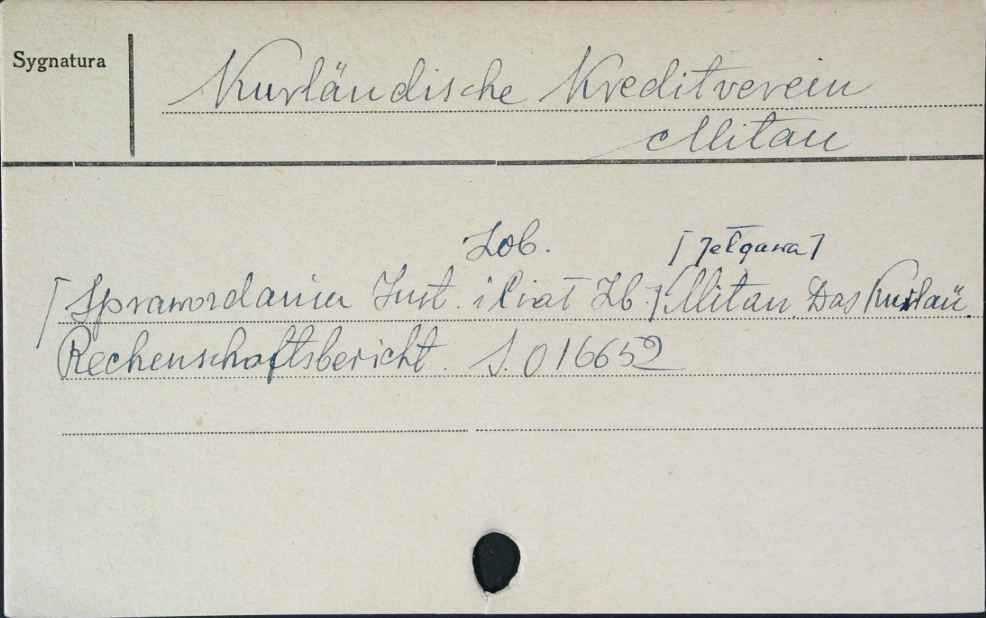 Sygnatura
Kurländische Kreditverein
Mitau
Zob.
[Jełgawa]
[Sprawozdania Inst. i Kiat Zb.] Mitau. Das Kurlän.
Rechenschaftsbericht. S. 016652